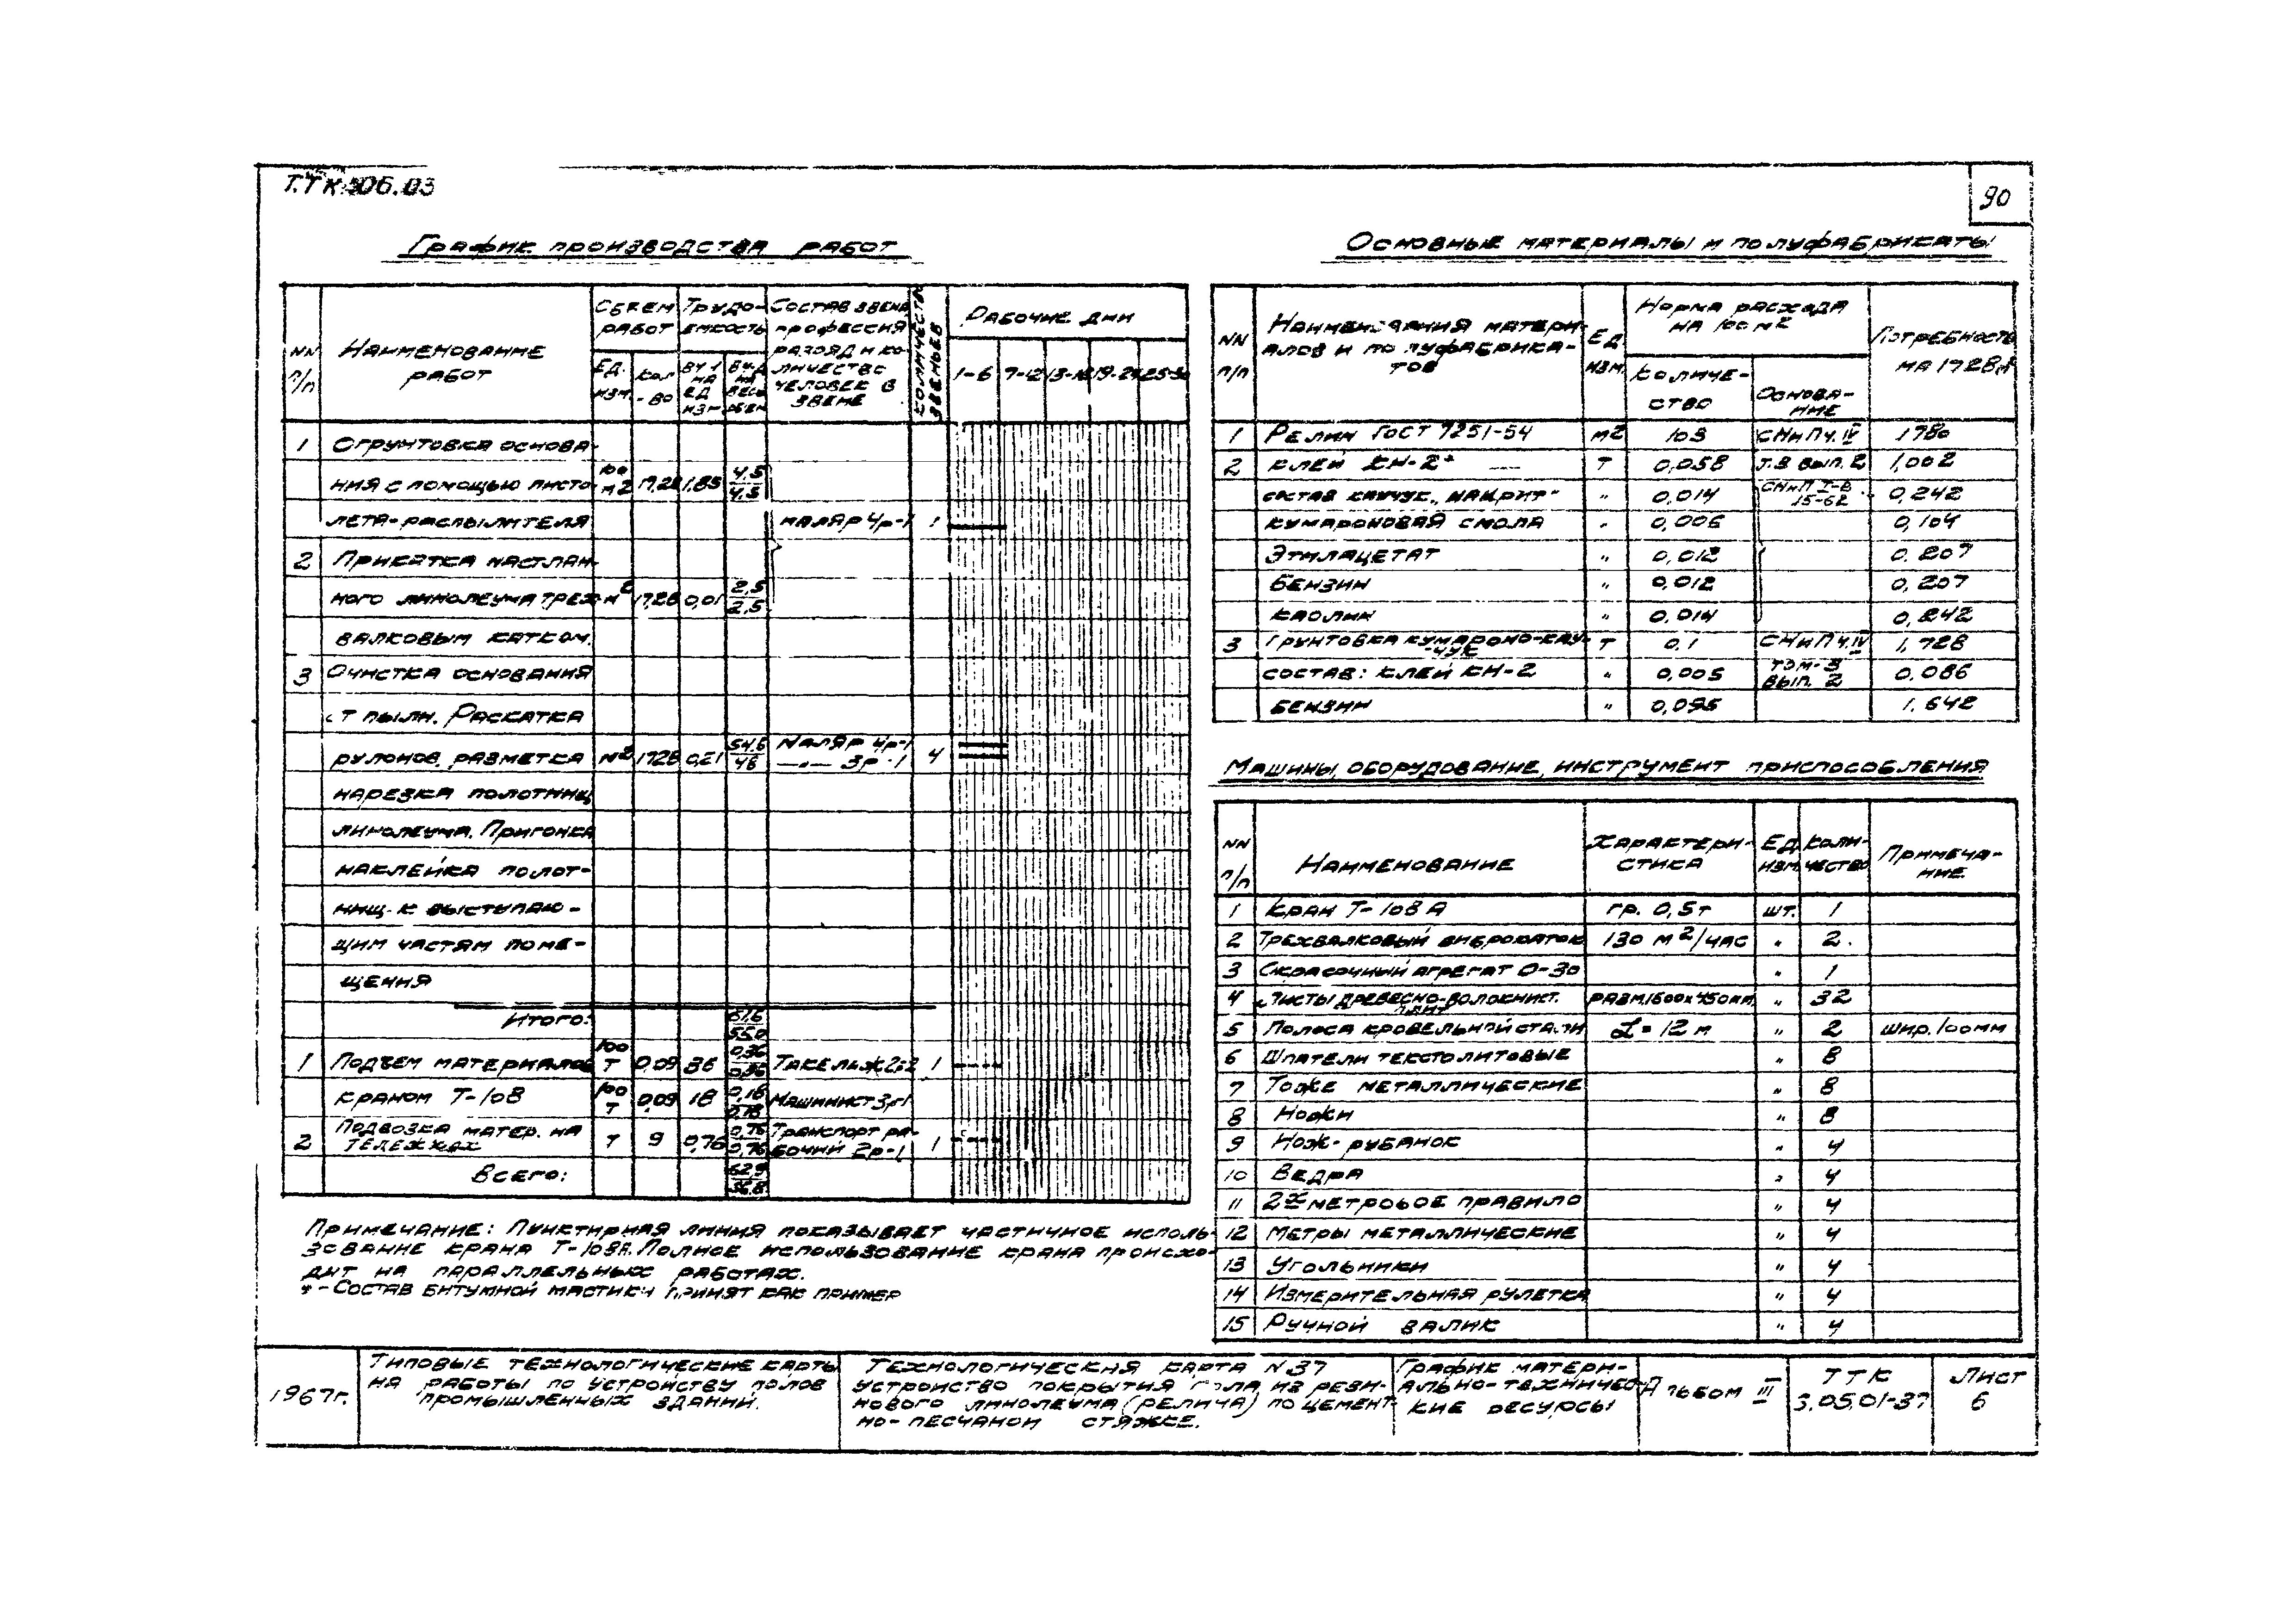 90
График производства работ
NN п/п
Наименование работ
Объем работ
Трудоемкость
Ед. изм.
Кол-во
Состав звена, профессия разряд и количество человек в звене
Количество звеньев
Рабочие дни
1-6 7-12 13-18 19-24 25-30
1 Огрунтовка основа-
ния с помощью писто- 100 м2 17,28 1,85 4,5 4,5
лета-распылителя маляр 4р-1 1
2 Прикатка настлан-
ного линолеума трех- м2 17,28 0,01 2,5 2,5
валковым катком.
3 Очистка основания
от пыли. Раскатка
рулонов, разметка м2 1728 0,21 54,6 48 Маляр 4р-1 —"— 3р-1 4
нарезка полотнищ
линолеума. Пригонка
наклейка полот-
нищ к выступаю-
щим частям поме-
щения
Итого: 61,6 55,0
1 Подъем материалов 100 т 0,09 36 0,36 0,36 Такелаж 2р-2 1
краном Т-108 100 т 0,09 18 0,18 0,18 Машинист 3р-1
2 Подвозка матер. на тележках т 9 0,76 0,76 0,76 Транспорт рабочий 2р-1 1
Всего: 62,9 56,8
Примечание: Пунктирная линия показывает частичное исполь-
зование крана Т-108А. Полное использование крана происхо-
дит на параллельных работах.
* - Состав битумной мастики принят как пример
Основные материалы и полуфабрикаты
NN п/п
Наименования материалов и полуфабрикатов
Ед. изм.
Норма расхода на 100 м2
Количество
Основание
Потребность на 1728 м2
1 Релин ГОСТ 7251-54 м2 103 СНиП ч. IV 1780
2 Клей КН-2* — т 0,058 т.3 вып. 2 1,002
состав каучук „наирит" " 0,014 СНиП I-В 15-62 0,242
кумароновая смола " 0,006 0,104
Этилацетат " 0,012 0,207
Бензин " 0,012 0,207
каолин " 0,014 0,242
3 Грунтовка кумароно-каучук т 0,1 СНиП ч. IV 1,728
состав: клей КН-2 " 0,005 том-3 вып. 2 0,086
бензин " 0,095 1,642
Машины, оборудование, инструмент приспособления
NN п/п
Наименование
Характеристика
Ед изм.
Количество
Примечание
1 Кран Т-108А гр. 0,5т шт. 1
2 Трехвалковый виброкаток 130 м2/час " 2
3 Окрасочный агрегат О-30 " 1
4 Листы древесно-волокнист. плит разм. 1600х450мм " 32
5 Полоса кровельной стали L = 12 м " 2 шир. 100мм
6 Шпатели текстолитовые " 8
7 То же металлические " 8
8 Ножи " 8
9 Нож-рубанок " 4
10 Ведра " 4
11 2х метровое правило " 4
12 Метры металлические " 4
13 Угольники " 4
14 Измерительная рулетка " 4
15 Ручной валик " 4
1967г.
Типовые технологические карты
на работы по устройству полов
промышленных зданий.
Технологическия карта N37
Устройство покрытия пола из рези-
нового линолеума (релина) по цемент-
но-песчаной стяжке.
График матери-
ально-техничес-
кие ресурсы
Альбом III
ТТК
3.05.01-37
Лист
6